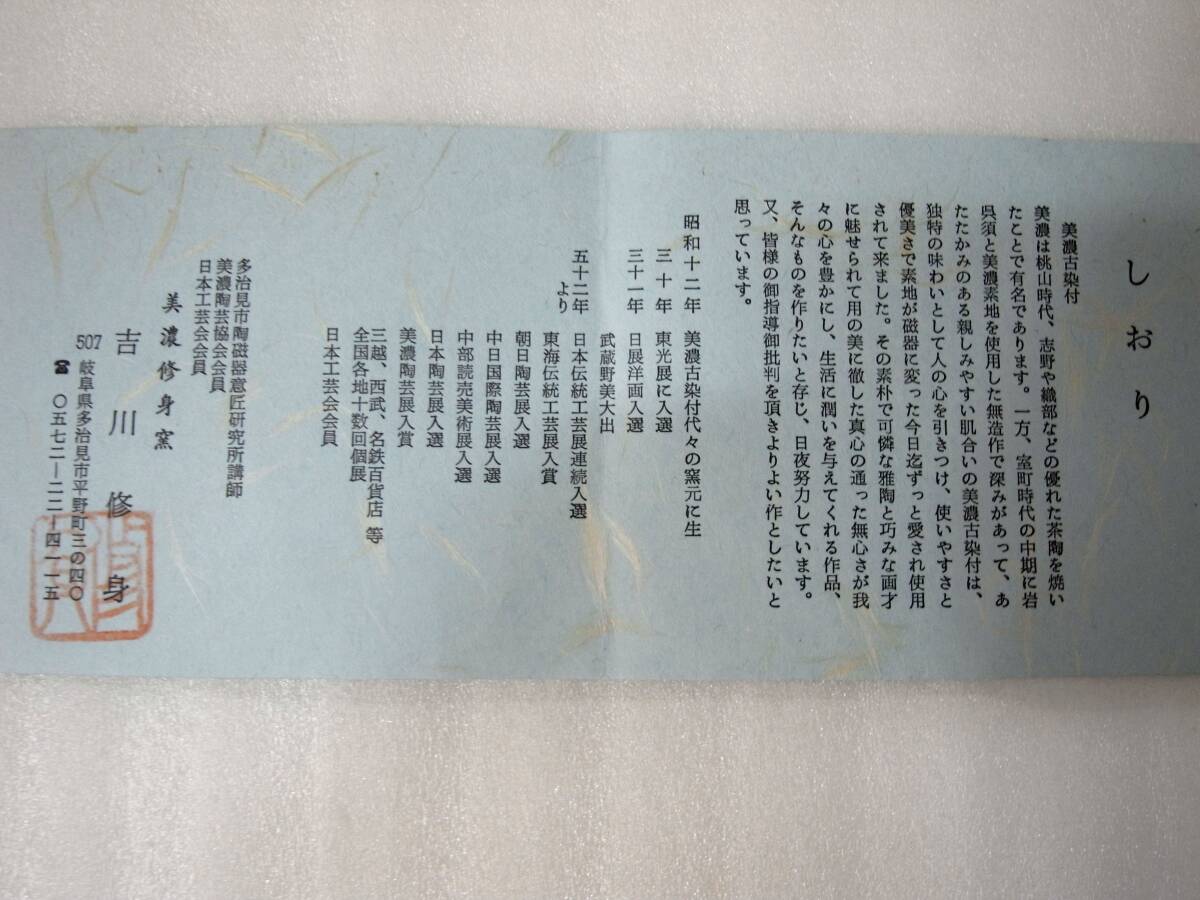 しおり
美濃古染付
美濃は桃山時代、志野や織部などの優れた茶陶を焼い
たことで有名であります。一方、室町時代の中期に岩
呉須と美濃素地を使用した無造作で深みがあって、あ
たたかみのある親しみやすい肌合いの美濃古染付は、
独特の味わいとして人の心を引きつけ、使いやすさと
優美さで素地が磁器に変った今日迄ずっと愛され使用
されて来ました。その素朴で可憐な雅陶と巧みな画才
に魅せられて用の美に徹した真心の通った無心さが我
々の心を豊かにし、生活に潤いを与えてくれる作品、
そんなものを作りたいと存じ、日夜努力しています。
又、皆様の御指導御批判を頂きよりよい作としたいと
思っています。
昭和十二年 美濃古染付代々の窯元に生
三十年 東光展に入選
三十一年 日展洋画入選
武蔵野美大出
五十二年より 日本伝統工芸展連続入選
東海伝統工芸展入賞
朝日陶芸展入選
中日国際陶芸展入選
中部読売美術展入選
日本陶芸展入選
美濃陶芸展入賞
三越、西武、名鉄百貨店 等
全国各地十数回個展
日本工芸会会員
多治見市陶磁器意匠研究所講師
美濃陶芸協会会員
日本工芸会会員
美濃修身窯
吉川修身
507 岐阜県多治見市平野町三の四〇
☎ 〇五七二―二二―四一一五